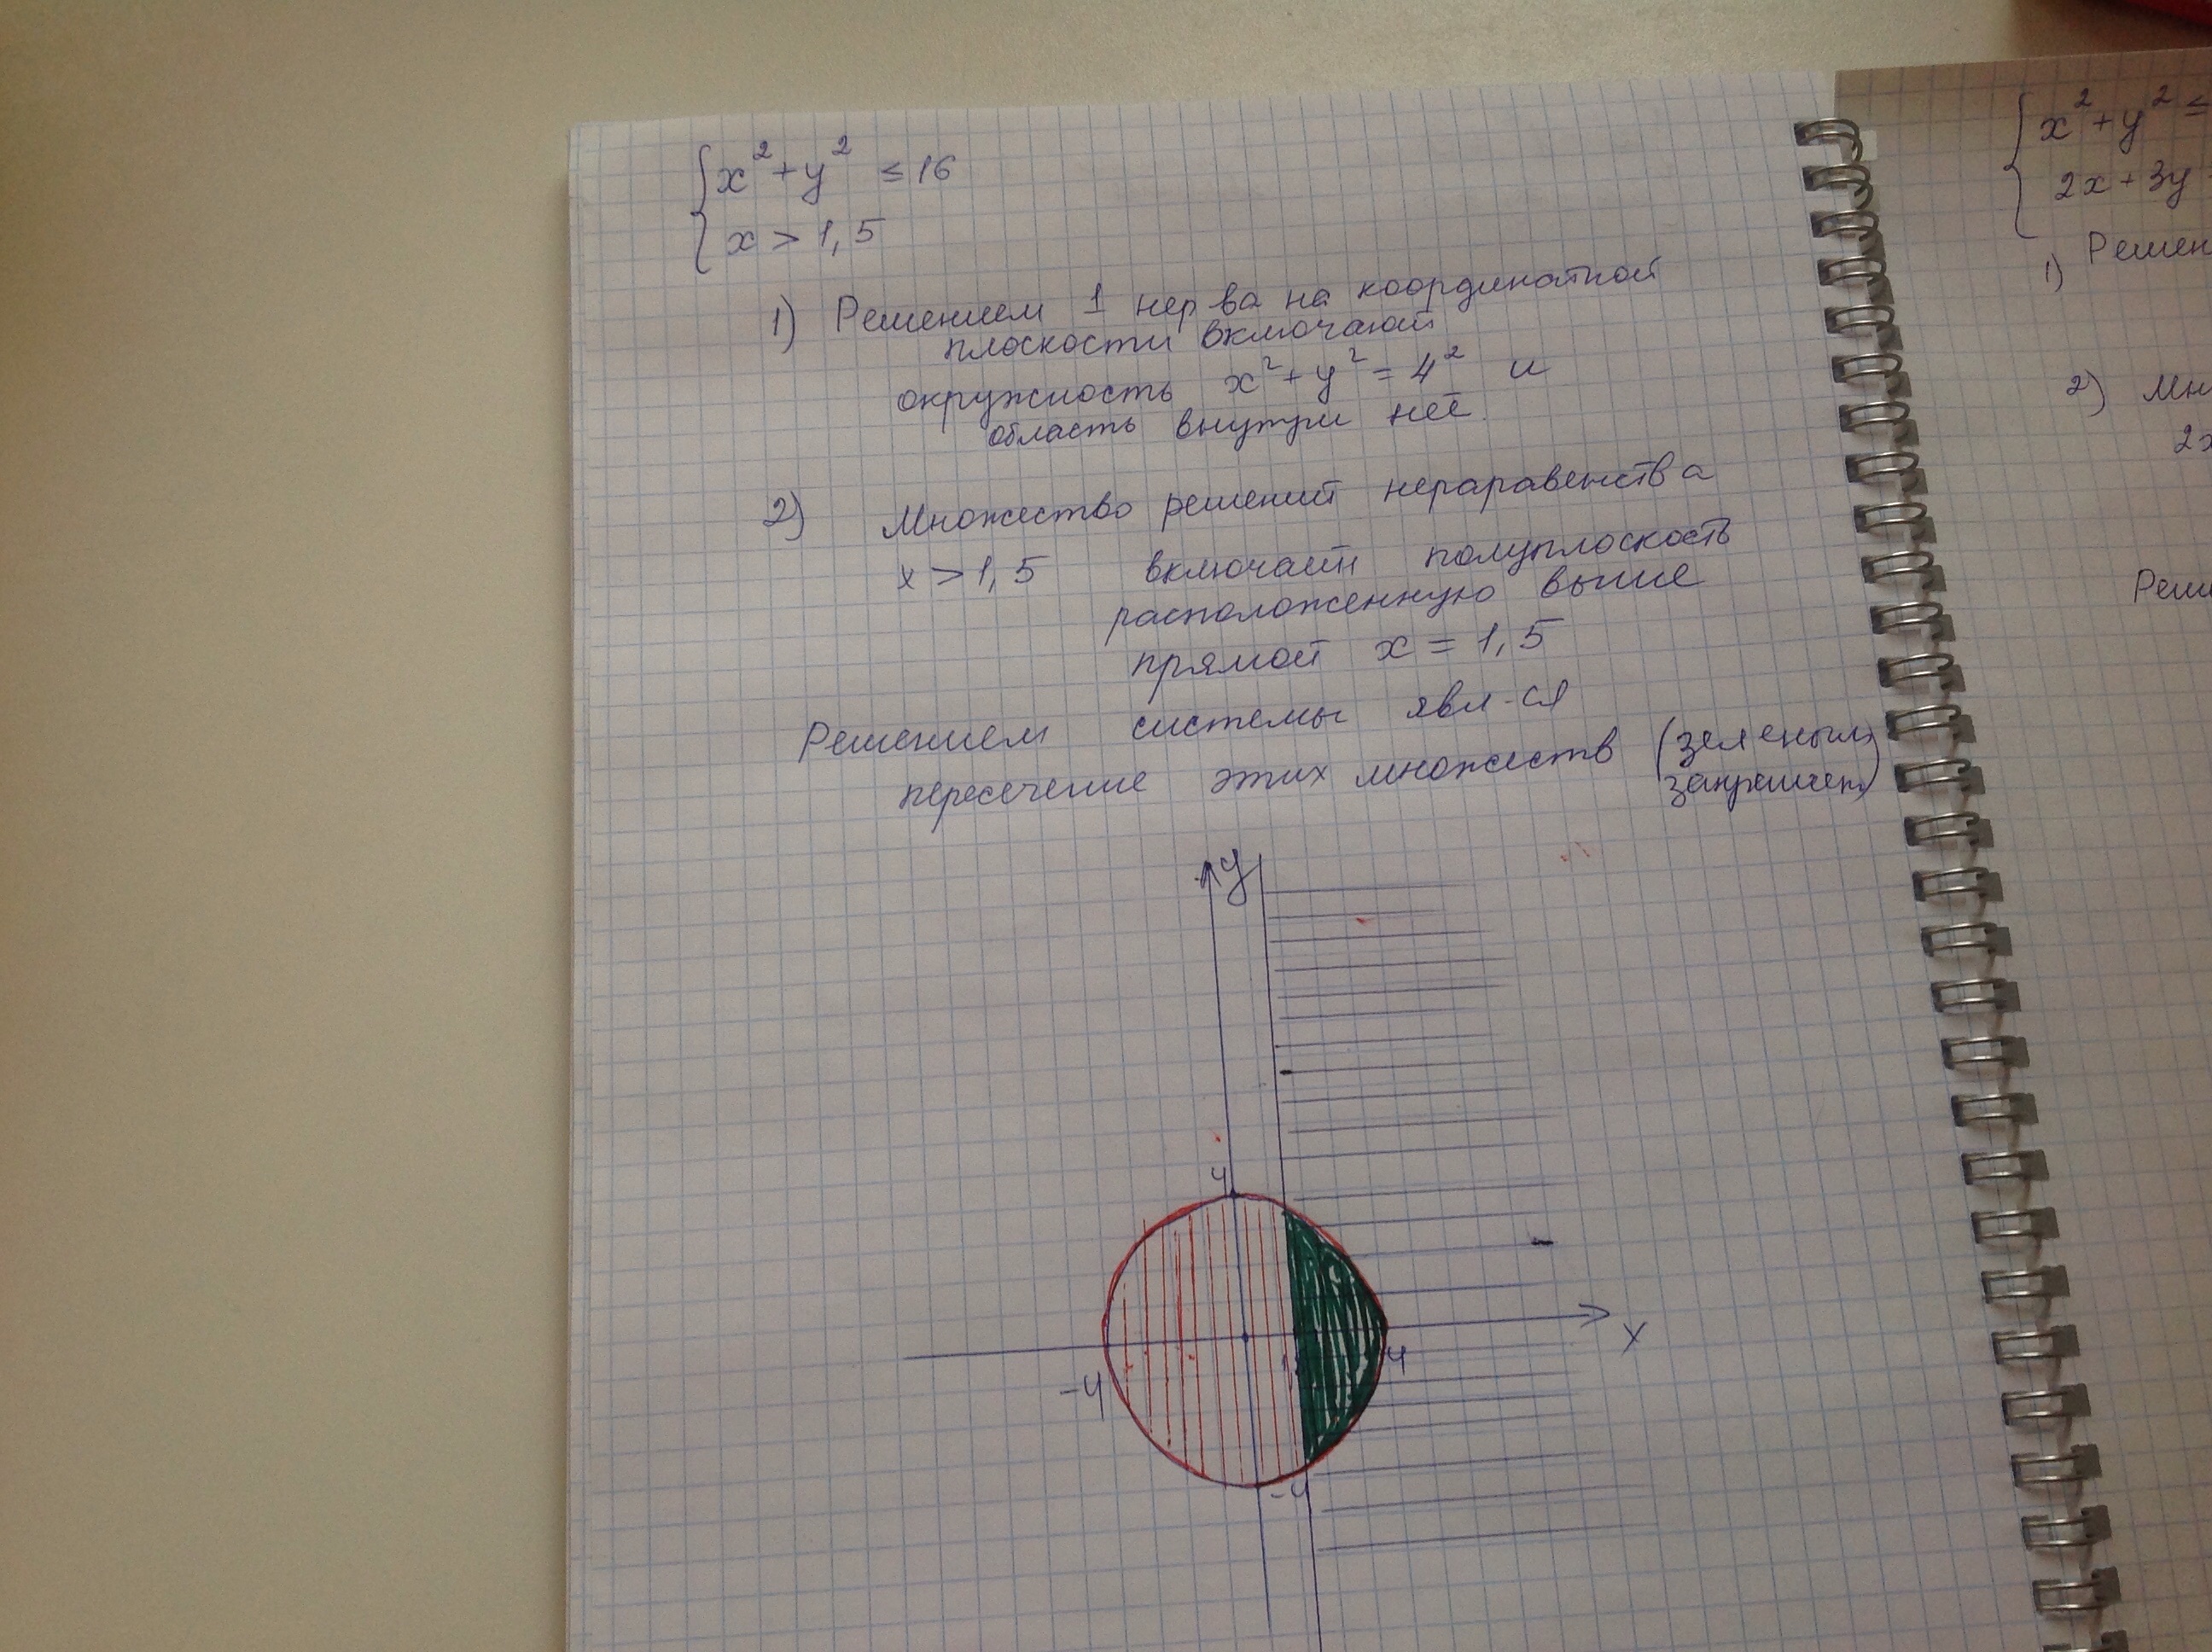 x² + y² ≤ 16
x > 1,5
1) Решением 1 нер ва на координатной
плоскости включают
окружность x² + y² = 4² и
область внутри неё.
2) Множество решений нераравенства
x > 1,5 включает полуплоскость
расположенную выше
прямой x = 1,5
Решением системы явл-ся
пересечение этих множеств (зеленым
закрашен)
y
4
-4
4
x
-4
x² + y² ≤
2x + 3y
1) Решен
2) Мн
2x
Реш